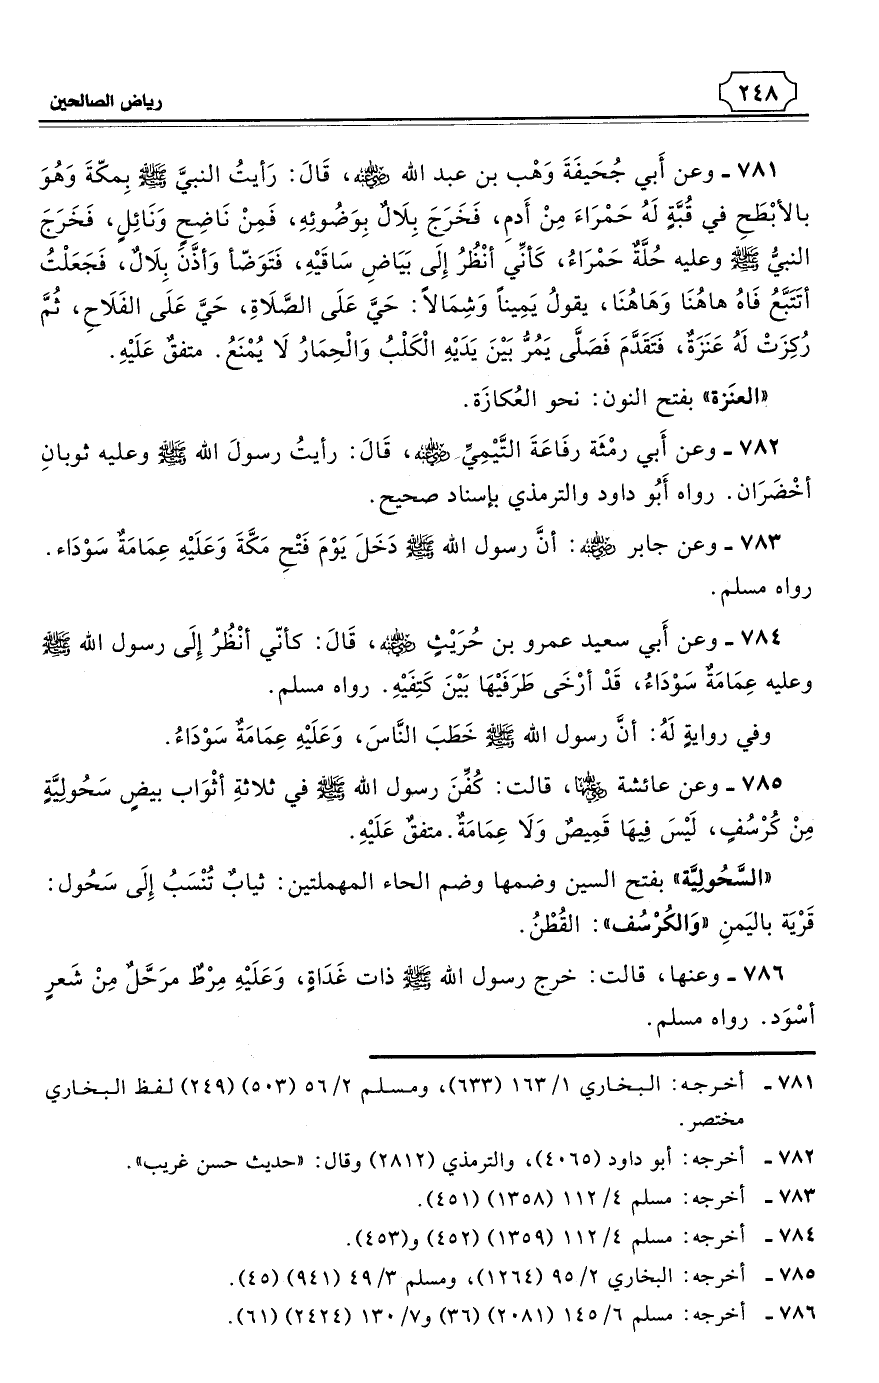 ٢٤٨
رياض الصالحين
٧٨١ ـ وعن أَبي جُحَيفَةَ وَهْب بن عبد الله رضي الله عنه، قَالَ: رَأيتُ النبيَّ ﷺ بِمكّةَ وَهُوَ
بالأبْطَحِ في قُبَّةٍ لَهُ حَمْرَاءَ مِنْ أَدمٍ، فَخَرَجَ بِلَالٌ بِوَضُوئِهِ، فَمِنْ نَاضِحٍ وَنَائِلٍ، فَخَرَجَ
النبيُّ ﷺ وعليه حُلَّةٌ حَمْرَاءُ، كَأنِّي أنْظُرُ إلَى بَيَاضِ سَاقَيْهِ، فَتَوَضّأ وَأذَّنَ بِلَالٌ، فَجَعَلْتُ
أتَتَبَّعُ فَاهُ هاهُنَا وَهَاهُنَا، يقولُ يَمِيناً وَشِمَالاً: حَيَّ عَلَى الصَّلَاةِ، حَيَّ عَلَى الفَلَاحِ، ثُمَّ
رُكِزَتْ لَهُ عَنَزَةٌ، فَتَقَدَّمَ فَصَلَّى يَمُرُّ بَيْنَ يَدَيْهِ الْكَلْبُ وَالْحِمَارُ لَا يُمْنَعُ. متفقٌ عَلَيْهِ.
«العنَزة» بفتح النون: نحو العُكازَة.
٧٨٢ ـ وعن أَبي رمْثَة رفَاعَةَ التَّيْمِيِّ رضي الله عنه، قَالَ: رأيتُ رسولَ الله ﷺ وعليه ثوبانِ
أخْضَرَان. رواه أَبُو داود والترمذي بإسناد صحيح.
٧٨٣ ـ وعن جابر رضي الله عنه: أنَّ رسول الله ﷺ دَخَلَ يَوْمَ فَتْحِ مَكَّةَ وَعَلَيْهِ عِمَامَةٌ سَوْدَاء.
رواه مسلم.
٧٨٤ ـ وعن أَبي سعيد عمرو بن حُرَيْثٍ رضي الله عنه، قَالَ: كأنّي أنْظُرُ إلَى رسول الله ﷺ
وعليه عِمَامَةٌ سَوْدَاءُ، قَدْ أرْخَى طَرَفَيْهَا بَيْنَ كَتِفَيْهِ. رواه مسلم.
وفي روايةٍ لَهُ: أنَّ رسول الله ﷺ خَطَبَ النَّاسَ، وَعَلَيْهِ عِمَامَةٌ سَوْدَاءُ.
٧٨٥ ـ وعن عائشة رضي الله عنها، قالت: كُفِّنَ رسول الله ﷺ في ثلاثةِ أثْوَاب بيضٍ سَحُولِيَّةٍ
مِنْ كُرْسُفٍ، لَيْسَ فِيهَا قَمِيصٌ وَلَا عِمَامَةٌ. متفقٌ عَلَيْهِ.
«السَّحُولِيَّة» بفتح السين وضمها وضم الحاء المهملتين: ثيابٌ تُنْسَبُ إلَى سَحُول:
قَرْيَة باليَمنِ «وَالكُرْسُف»: القُطْنُ.
٧٨٦ ـ وعنها، قالت: خرج رسول الله ﷺ ذات غَدَاةٍ، وَعَلَيْهِ مِرْطٌ مرَحَّلٌ مِنْ شَعرٍ
أسْوَد. رواه مسلم.
٧٨١ ـ أخرجه: البخاري ١/ ١٦٣ (٦٣٣)، ومسلم ٢/ ٥٦ (٥٠٣) (٢٤٩) لفظ البخاري
مختصر.
٧٨٢ ـ أخرجه: أبو داود (٤٠٦٥)، والترمذي (٢٨١٢) وقال: «حديث حسن غريب».
٧٨٣ ـ أخرجه: مسلم ٤/ ١١٢ (١٣٥٨) (٤٥١).
٧٨٤ ـ أخرجه: مسلم ٤/ ١١٢ (١٣٥٩) (٤٥٢) و(٤٥٣).
٧٨٥ ـ أخرجه: البخاري ٢/ ٩٥ (١٢٦٤)، ومسلم ٣/ ٤٩ (٩٤١) (٤٥).
٧٨٦ ـ أخرجه: مسلم ٦/ ١٤٥ (٢٠٨١) (٣٦) و٧/ ١٣٠ (٢٤٢٤) (٦١).